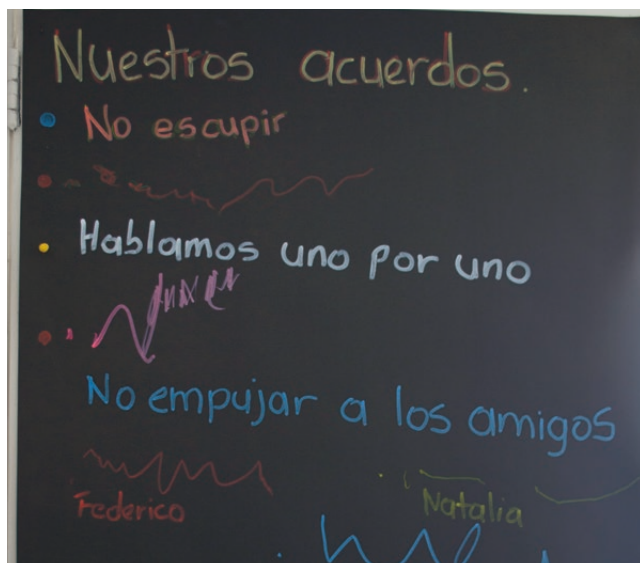 Nuestros acuerdos.
No escupir
Hablamos uno por uno
No empujar a los amigos
Federico
Natalia